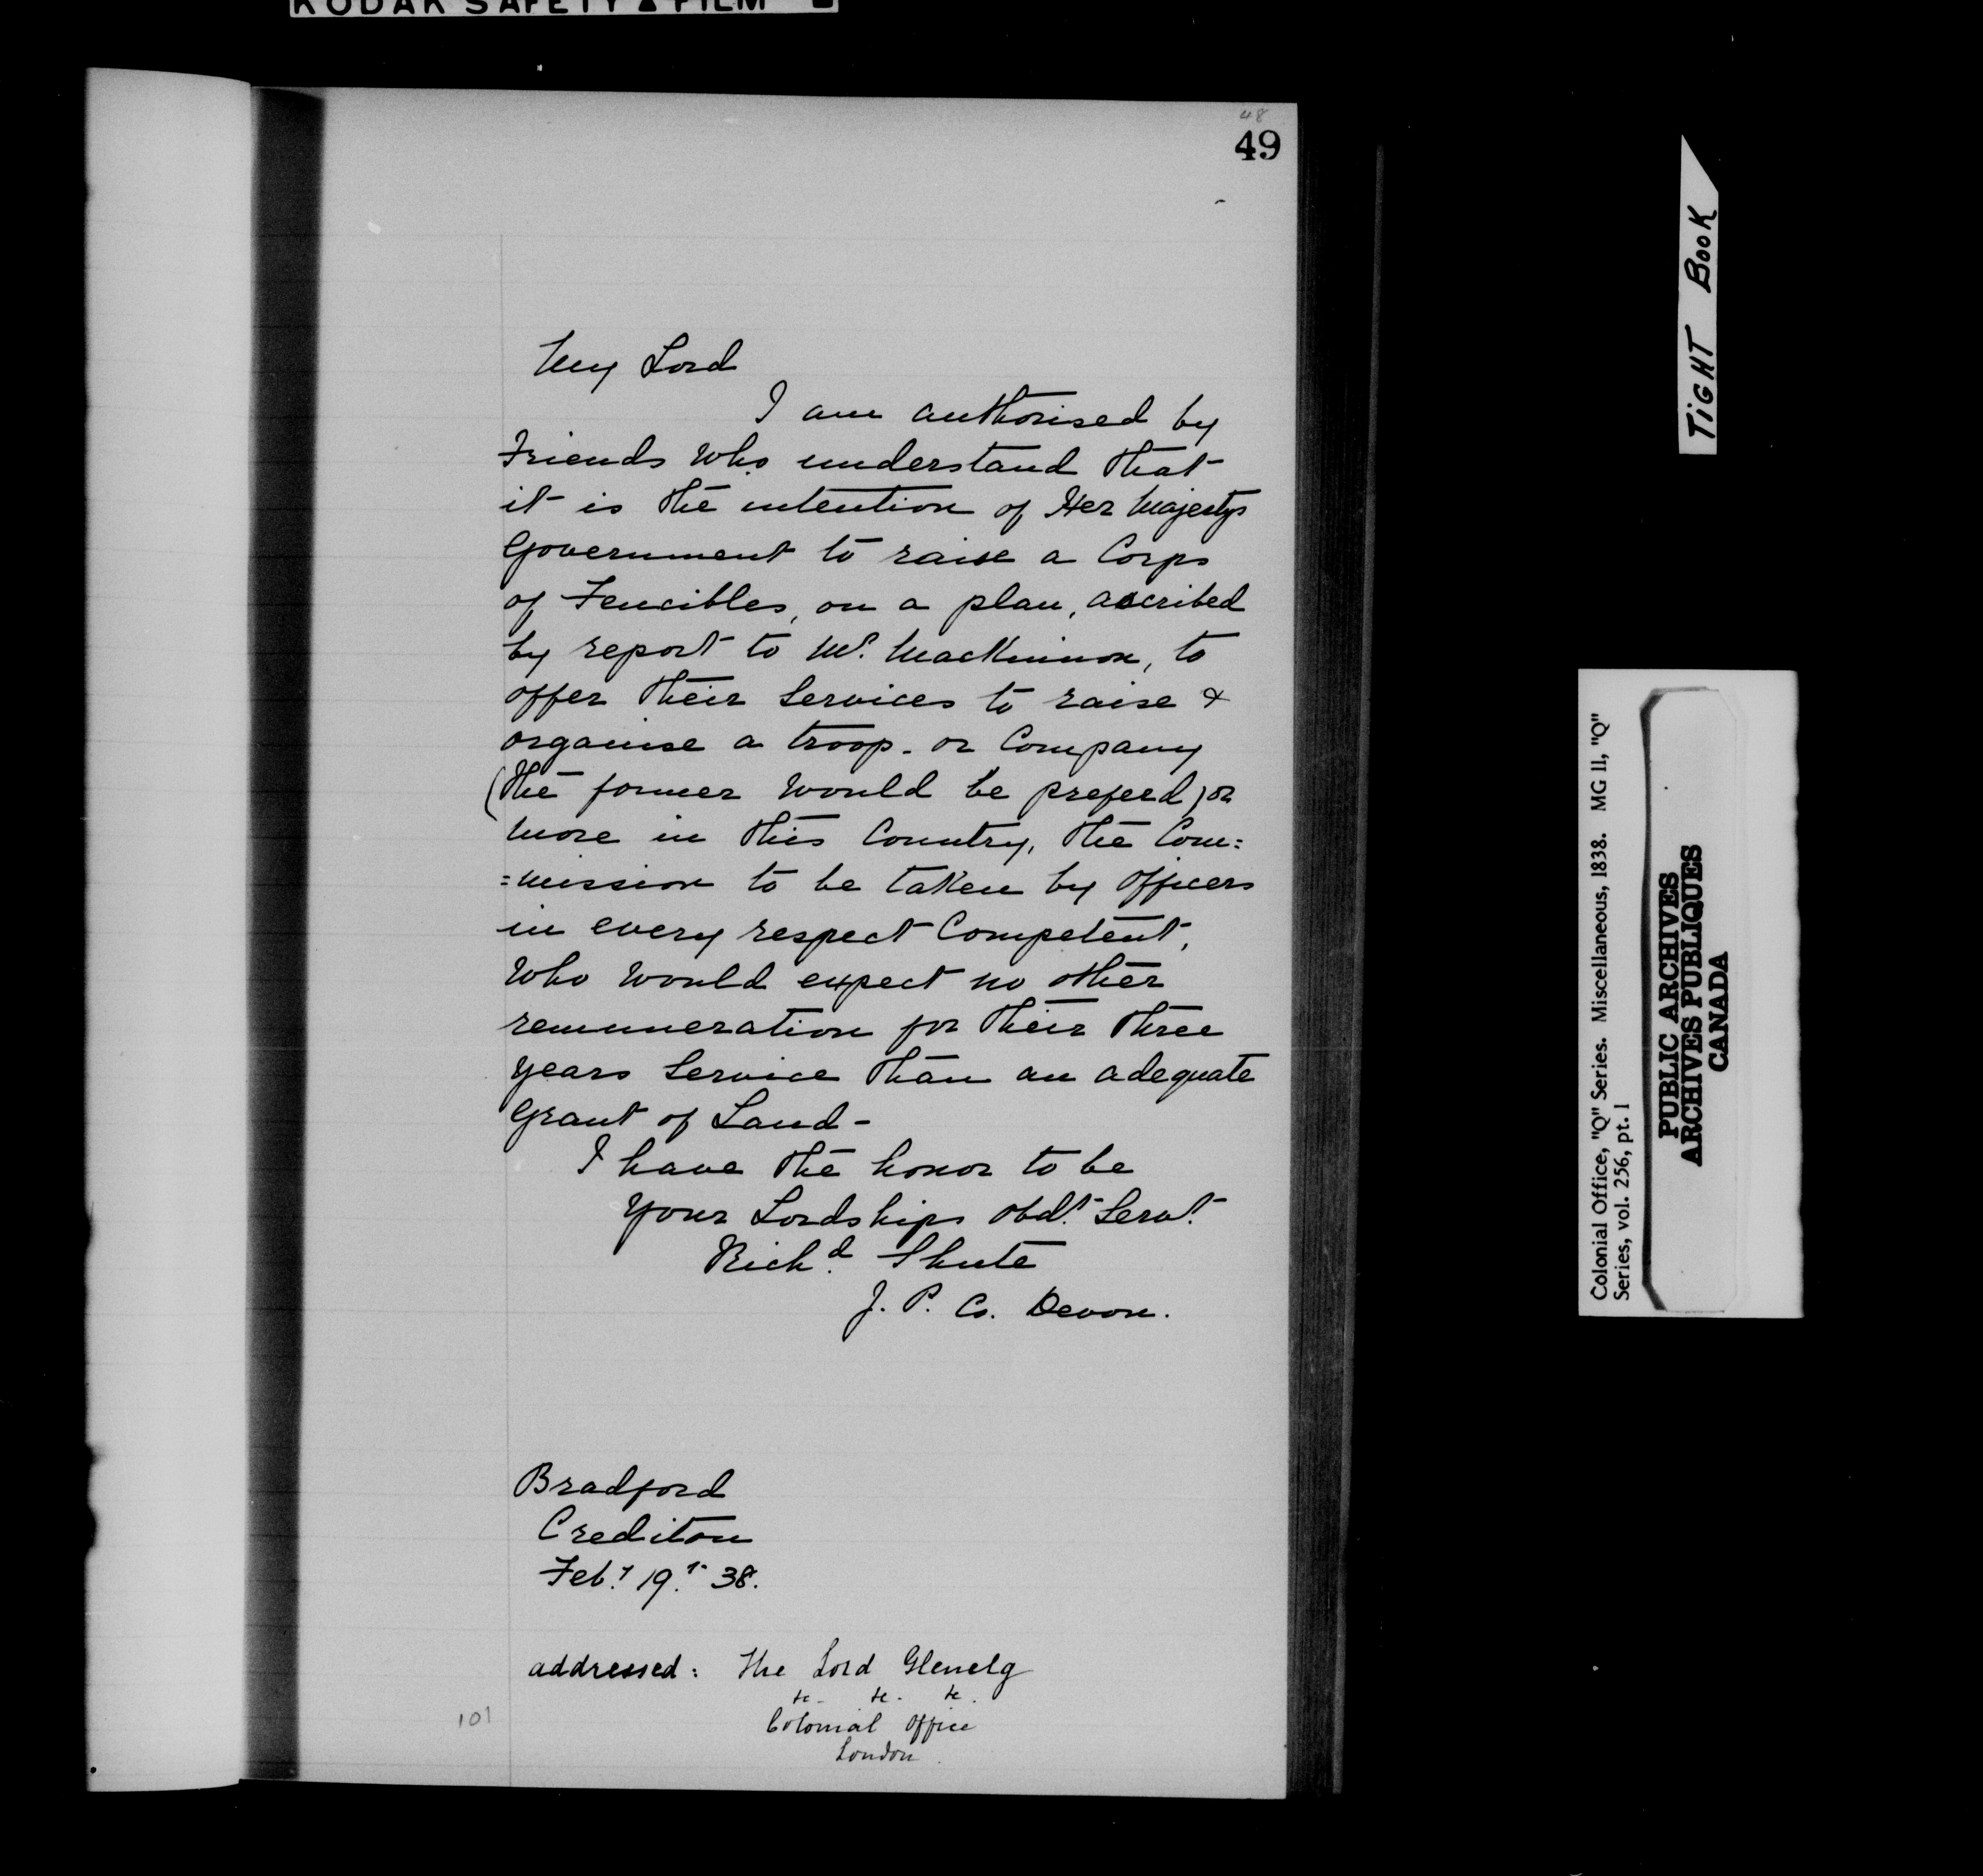 KODAK SAFETY ▲ FILM
48
49
My Lord
I am authorised by
Friends who understand that
it is the intention of Her Majestys
Government to raise a Corps
of Fencibles, on a plan, ascribed
by report to Mr. MacKinnon, to
offer their Services to raise &
organise a troop. or Company
(the former would be preferd) or
more in this Country, the Com:
:mission to be taken by Officers
in every respect Competent,
who would expect no other
remuneration for their three
years Service than an adequate
Grant of Land -
I have the honor to be
Your Lordships Obdt. Servt.
Richd. Shute
J. P. Co. Devon.
Bradford
Crediton
Feby 19th 38.
addressed: The Lord Glenelg
&c. &c. &c.
Colonial Office
London
101
TIGHT BOOK
Colonial Office, "Q" Series. Miscellaneous, 1838. MG 11, "Q"
Series, vol. 256, pt. 1
PUBLIC ARCHIVES
ARCHIVES PUBLIQUES
CANADA